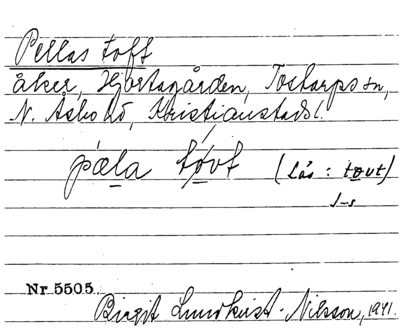 Pellas toft
åker, Hjortsgården, Tostarps sn,
N. Åsbo hd, Kristianstads l.
pæla tovt (läs: tovt)
J-s
Nr 5505
Birgit Lundkvist-Nilsson, 1941.